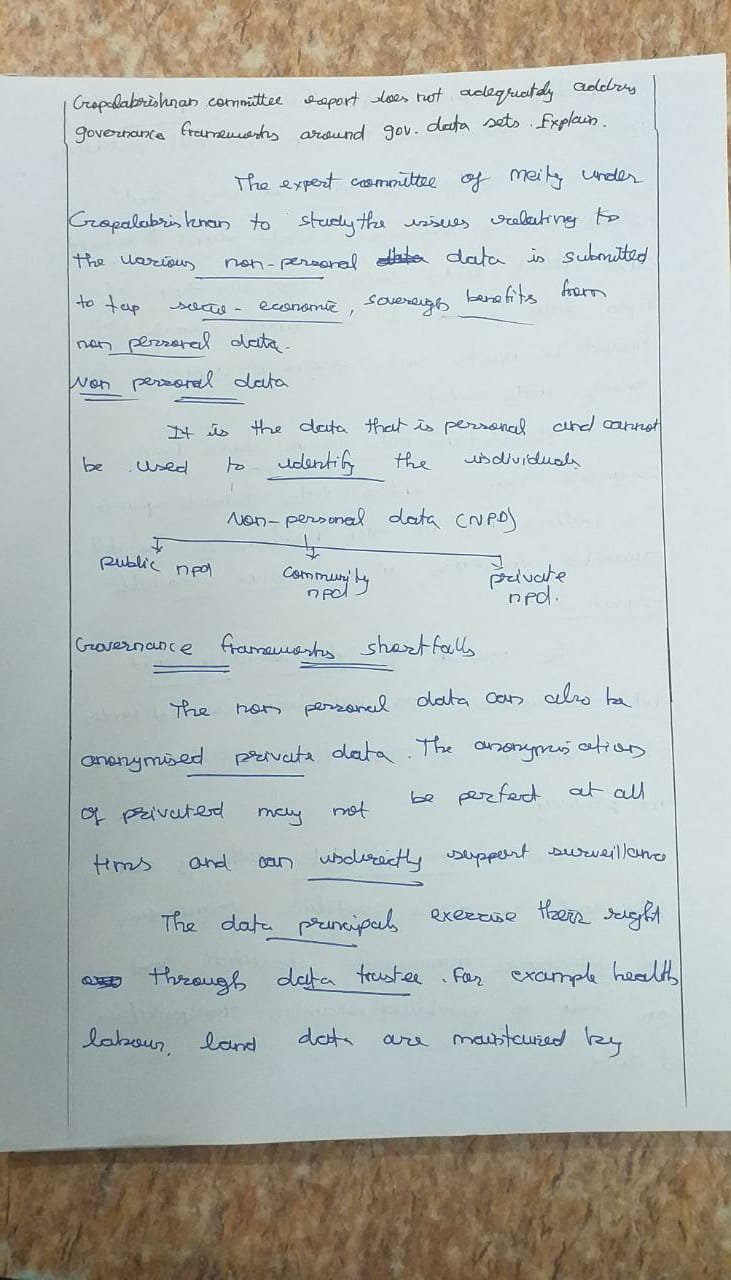 Gopalakrishnan committee report does not adequately address
governance frameworks around gov. data sets. Explain.
The expert committee of Meity under
Gopalakrishnan to study the issues relating to
the various non-personal data data is submitted
to tap socio-economic, sovereign benefits from
non personal data.
Non personal data
It is the data that is personal and cannot
be used to identify the individuals
Non-personal data (NPD)
public npd community npd private npd.
Governance frameworks shortfalls
The non personal data can also be
anonymised private data. The anonymisation
of privated may not be perfect at all
tims and can indirectly support surveillance
The data principals exercise their right
through data trustee. For example health
labour, land data are maintained by